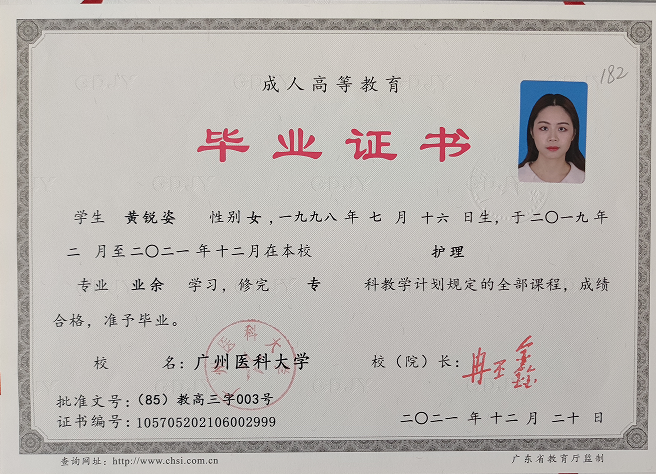 182
成人高等教育
毕业证书
学生 黄锐姿 性别 女 ,一九九八 年 七 月 十六 日生，于二〇一九 年
二 月至二〇二一 年 十二月在本校 护理
专业 业余 学习，修完 专 科教学计划规定的全部课程，成绩
合格，准予毕业。
校 名：广州医科大学 校（院）长：
批准文号：（85）教高三字003号
证书编号：105705202106002999 二〇二一 年 十二 月 二十 日
查询网址：http://www.chsi.com.cn 广东省教育厅监制